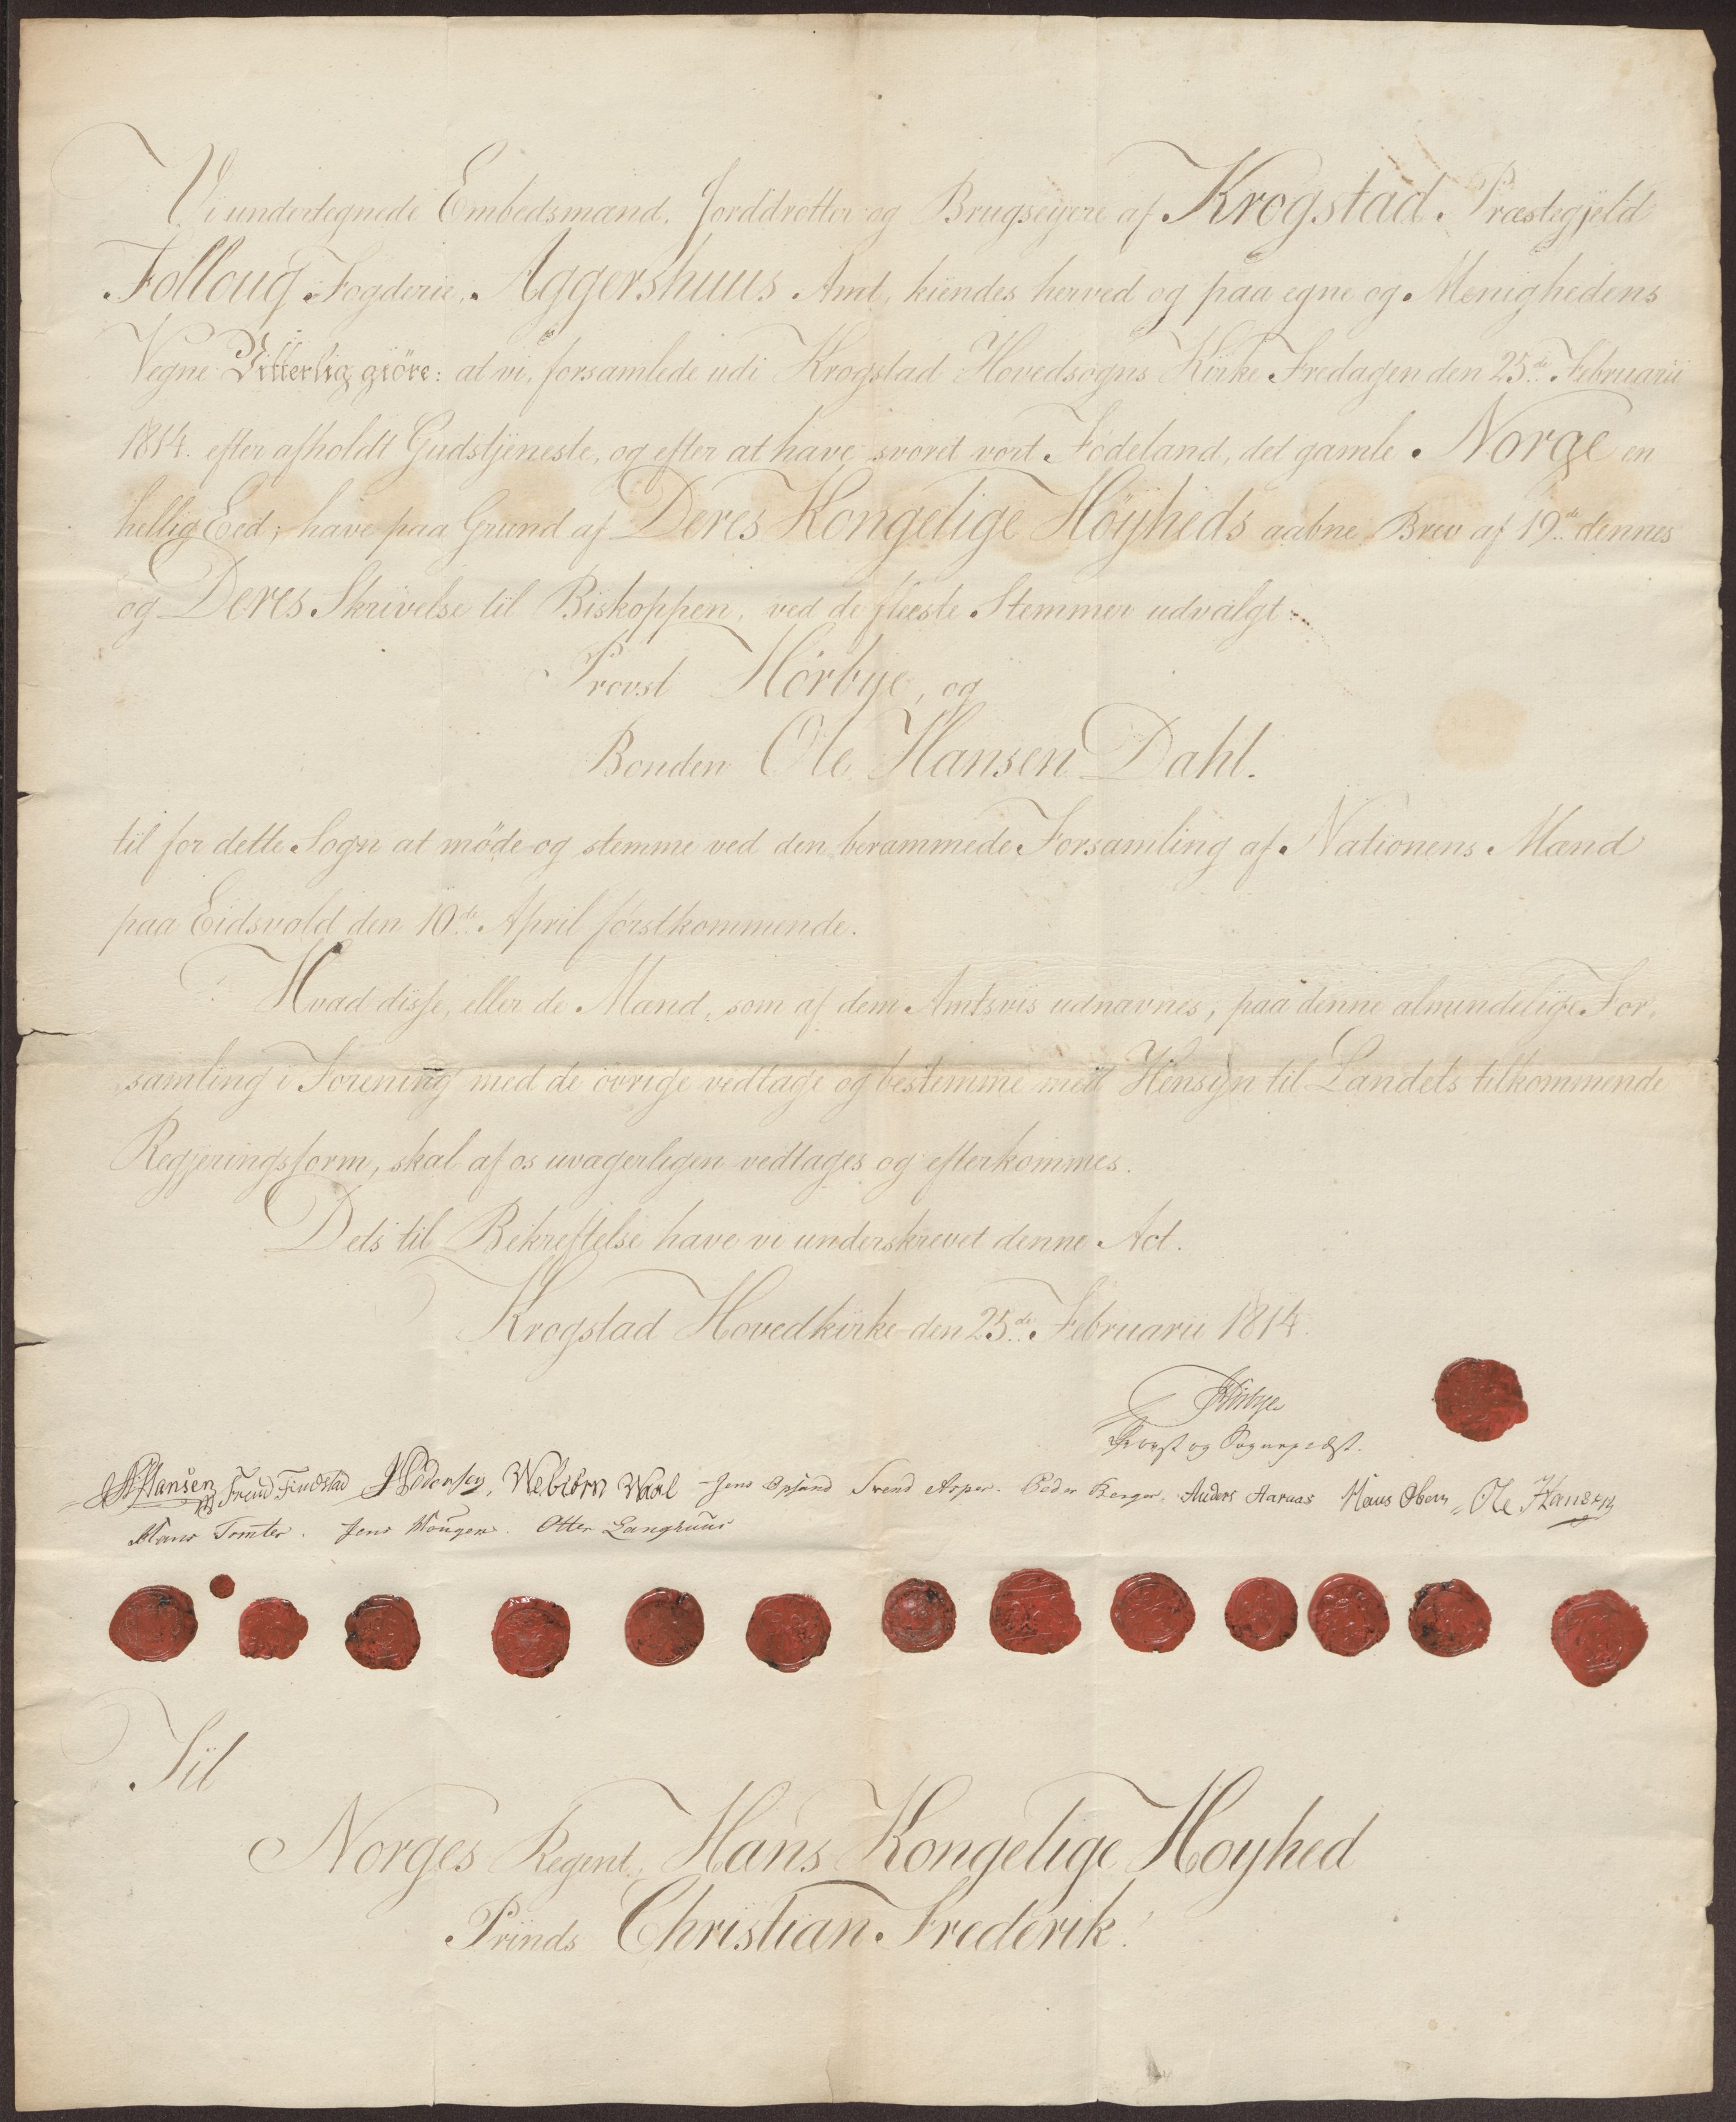 Vi undertegnede Embedsmænd, Jorddrotter og Brugseyere af Krogstad Præstegjeld
Folloug Fogderie, Aggershuus Amt, kiendes herved og paa egne og Menighedens
Vegne Vitterlig giöre: at vi, forsamlede udi Krogstad Hovedsogns Kirke Fredagen den 25de Februarii
1814. efter afholdt Gudstjeneste, og efter at have svoret vort Fødeland, det gamle Norge en
hellig Eed; have paa Grund af Deres Kongelige Höyheds aabne Brev af 19de dennes
og Deres Skrivelse til Biskoppen, ved de fleeste Stemmer udvalgt:
Provst Hörbye, og
Bonden Ole Hansen Dahl.
til for dette Sogn at möde og stemme ved den berammede Forsamling af Nationens Mænd
paa Eidsvold den 10de April förstkommende.
Hvad disse, eller de Mænd, som af dem Amtsvis udnævnes, paa denne almindelige For-
samling i Forening med de övrige vedtage og bestemme med Hensyn til Landets tilkommende
Regjeringsform, skal af os uvægerligen vedtages og efterkommes.
Dets til Bekreftelse have vi underskrevet denne Act.
Krogstad Hovedkirke den 25de Februarii 1814.
Hörbye
Provst og Sognepræst.
Hansen Svend Findstad Pedersen, Webiörn Waal Jens Opsand Svend Asper. Peder Berger. Anders Aaraas Hans Ole Hansen
Hans Tomter. Jens Hougen. Otter Langhuus
Til
Norges Regent, Hans Kongelige Høyhed
Prinds Christian Frederik!